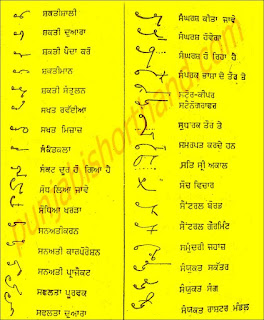 ਸ਼ਕਤੀਸ਼ਾਲੀ
ਸ਼ਕਤੀ ਦੁਆਰਾ
ਸ਼ਕਤੀ ਪੈਦਾ ਕਰੋ
ਸ਼ਕਤੀਮਾਨ
ਸ਼ਕਤੀ ਸੰਤੁਲਨ
ਸਖਤ ਰਵੱਈਆ
ਸਖਤ ਮਿਜ਼ਾਜ
ਸੰਕਟਕਾਲ
ਸੰਕਟ ਦੂਰ ਹੋ ਗਿਆ ਹੈ
ਸੋਧ ਲਿਆ ਜਾਵੇ
ਸੋਧਿਆ ਖਰੜਾ
ਸਨਅਤੀਕਰਨ
ਸਨਅਤੀ ਕਾਰਪੋਰੇਸ਼ਨ
ਸਨਅਤੀ ਪ੍ਰਾਜੈਕਟ
ਸਫਲਤਾ ਪੂਰਵਕ
ਸਫਲਤਾ ਦੁਆਰਾ
ਸੰਘਰਸ਼ ਕੀਤਾ ਜਾਵੇ
ਸੰਘਰਸ਼ ਹੋਵੇਗਾ
ਸੰਘਰਸ਼ ਹੋ ਰਿਹਾ ਹੈ
ਸੰਪਰਕ ਭਾਸ਼ਾ ਦੇ ਤੌਰ ਤੇ
ਸਟੋਰ-ਕੀਪਰ
ਸਟੈਨੋਗ੍ਰਾਫਰ
ਸੁਧਾਰਕ ਤੌਰ ਤੇ
ਸਮਰਥਕ ਕਰਦੇ ਹਨ
ਸਤਿ ਸ੍ਰੀ ਅਕਾਲ
ਸੋਚ ਵਿਚਾਰ
ਸੈਂਟਰਲ ਬੋਰਡ
ਸੈਂਟਰਲ ਗੌਰਮਿੰਟ
ਸਮੁੰਦਰੀ ਜਹਾਜ਼
ਸੰਯੁਕਤ ਸਕੱਤਰ
ਸੰਯੁਕਤ ਸੰਗ
ਸੰਯੁਕਤ ਰਾਸ਼ਟਰ ਮੰਡਲ
punjabishorthand.com